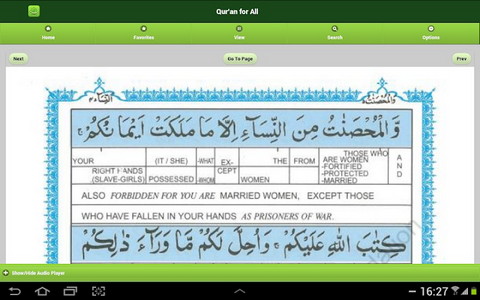 Qur'an for All
Home Favorites View Search Options
Next Go To Page Prev
النساء ٤ والمحصنت ٥
وَّالْمُحْصَنٰتُ مِنَ النِّسَآءِ اِلَّا مَا مَلَكَتْ اَيْمَانُكُمْ
YOUR RIGHT HANDS (SLAVE-GIRLS) (IT / SHE) POSSESSED -WHAT -WHOM EX-CEPT THE WOMEN FROM THOSE WHO ARE WOMEN -FORTIFIED -PROTECTED -MARRIED AND
ALSO FORBIDDEN FOR YOU ARE MARRIED WOMEN, EXCEPT THOSE
WHO HAVE FALLEN IN YOUR HANDS AS PRISONERS OF WAR.
كِتٰبَ اللّٰهِ عَلَيْكُمْ ۚ وَاُحِلَّ لَكُمْ مَّا وَرَآءَ ذٰلِكُمْ
Show/Hide Audio Player
16:27